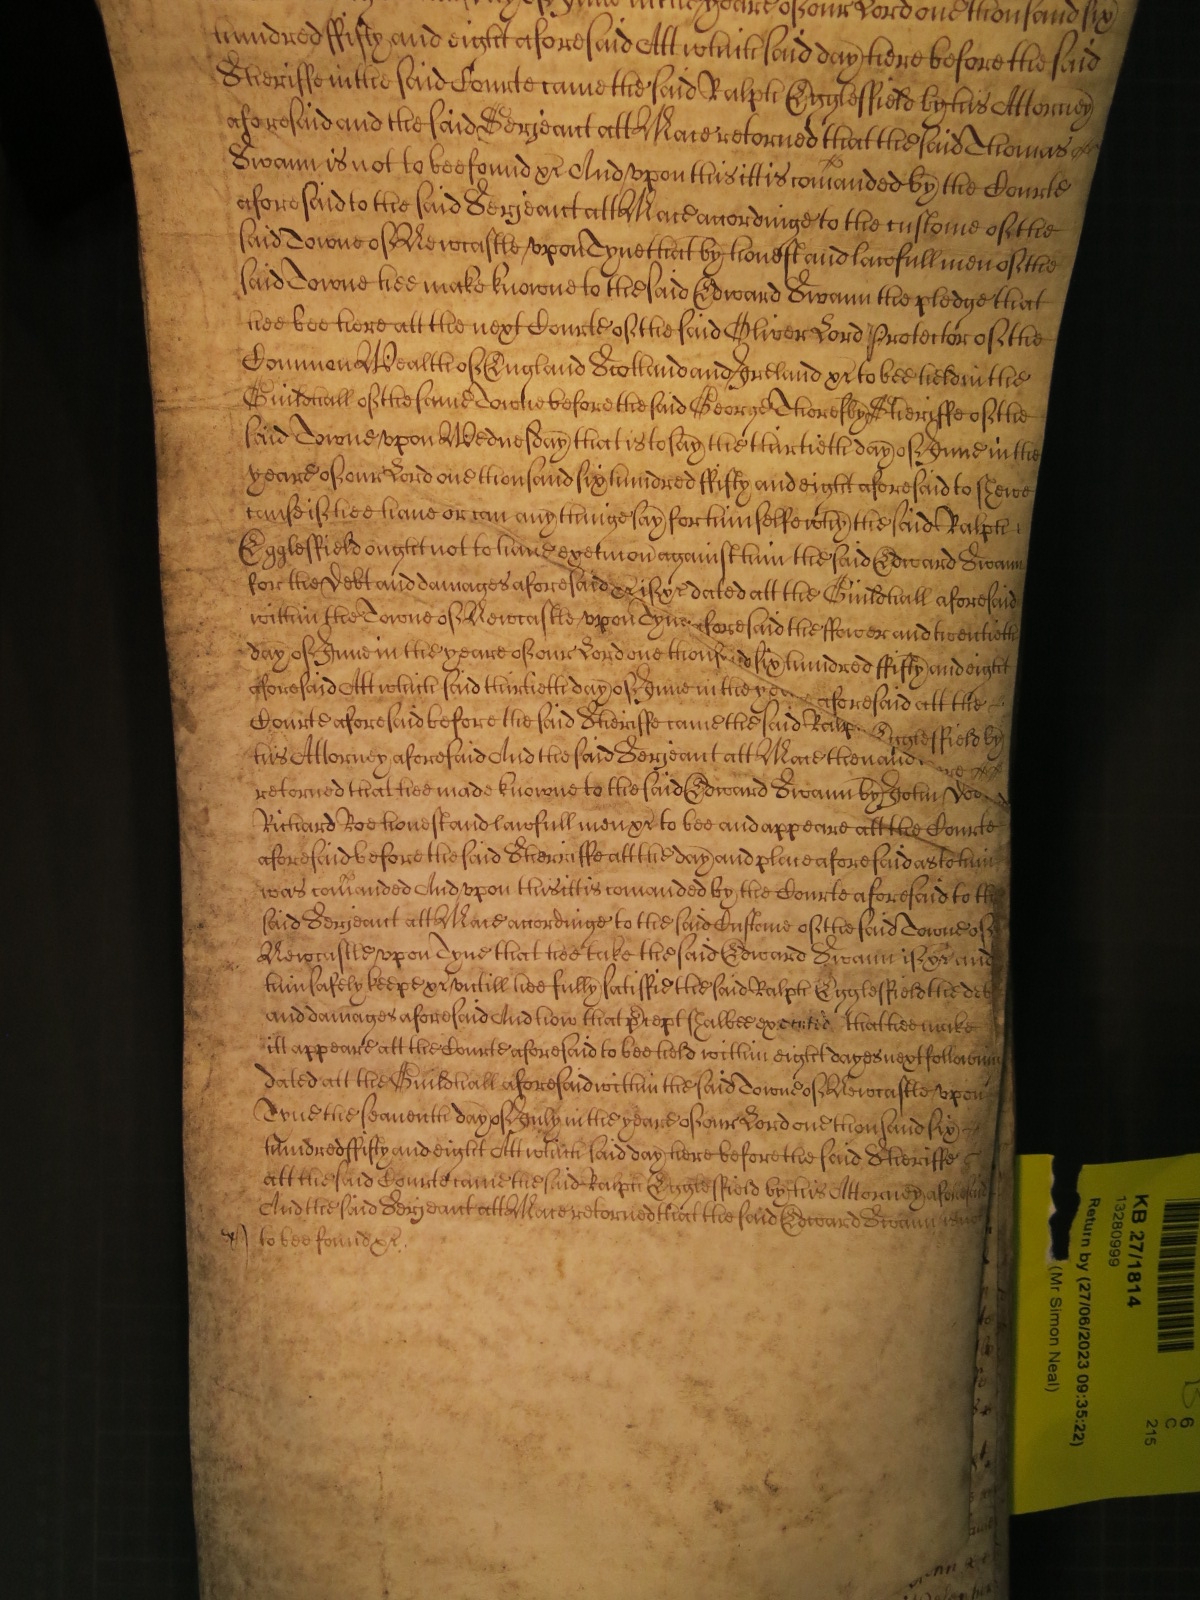 of June in the yeare of our Lord one thousand six
hundred ffifty and eight aforesaid Att which said day here before the said
Sheriffe in the said Courte came the said Ralph Egglesffield by his Attorney
aforesaid and the said Serjeant att Mace retorned that the said Thomas
Swann is not to bee found &c And vpon this itt is comanded by the Courte
aforesaid to the said Serjeant att Mace accordinge to the custome of the
said Towne of Newcastle vpon Tyne that by honest and lawfull men of the
said Towne hee make knowne to the said Edward Swann the pledge that
hee bee here att the next Courte of the said Oliver Lord Protector of the
Common Wealth of England Scotland and Ireland &c to bee held in the
Guildhall of the same Towne before the said George Thoresby Sheriffe of the
said Towne vpon Wednesday that is to say the thirtieth day of June in the
yeare of our Lord one thousand six hundred ffifty and eight aforesaid to shewe
cause if hee haue or can any thinge say for himselfe why the said Ralph
Egglesffield ought not to haue execucon against him the said Edward Swann
for the Debt and damages aforesaid &c if &c dated att the Guildhall aforesaid
within the Towne of Newcastle vpon Tyne aforesaid the ffower and twentieth
day of June in the yeare of our Lord one thousand six hundred ffifty and eight
aforesaid Att which said thirtieth day of June in the yeare aforesaid att the
Courte aforesaid before the said Sheriffe came the said Ralph Egglesffield by
his Attorney aforesaid And the said Serjeant att Mace then and
retorned that hee made knowne to the said Edward Swann by John Doe
Richard Roe honest and lawfull men &c to bee and appeare att the Courte
aforesaid before the said Sheriffe att the day and place aforesaid as to him
was comanded And vpon this itt is comanded by the Courte aforesaid to the
said Serjeant att Mace accordinge to the said Custome of the said Towne of
Newcastle vpon Tyne that hee take the said Edward Swann if &c and
him safely keepe &c vntill hee fully satisfie the said Ralph Egglesffield the debt
and damages aforesaid And how that precept shalbee executed that hee make
itt appeare att the Courte aforesaid to bee held within eight dayes next followin
dated att the Guildhall aforesaid within the said Towne of Newcastle vpon
Tyne the seaventh day of July in the yeare of our Lord one thousand six
hundred ffifty and eight Att which said day here before the said Sheriffe
att the said Courte came the said Ralph Egglesffield by his Attorney aforesaid
And the said Serjeant att Mace retorned that the said Edward Swann is not
to bee found &c
KB 27/1814
13280999
Return by (27/06/2023 09:35:22)
(Mr Simon Neal)
6
C
215